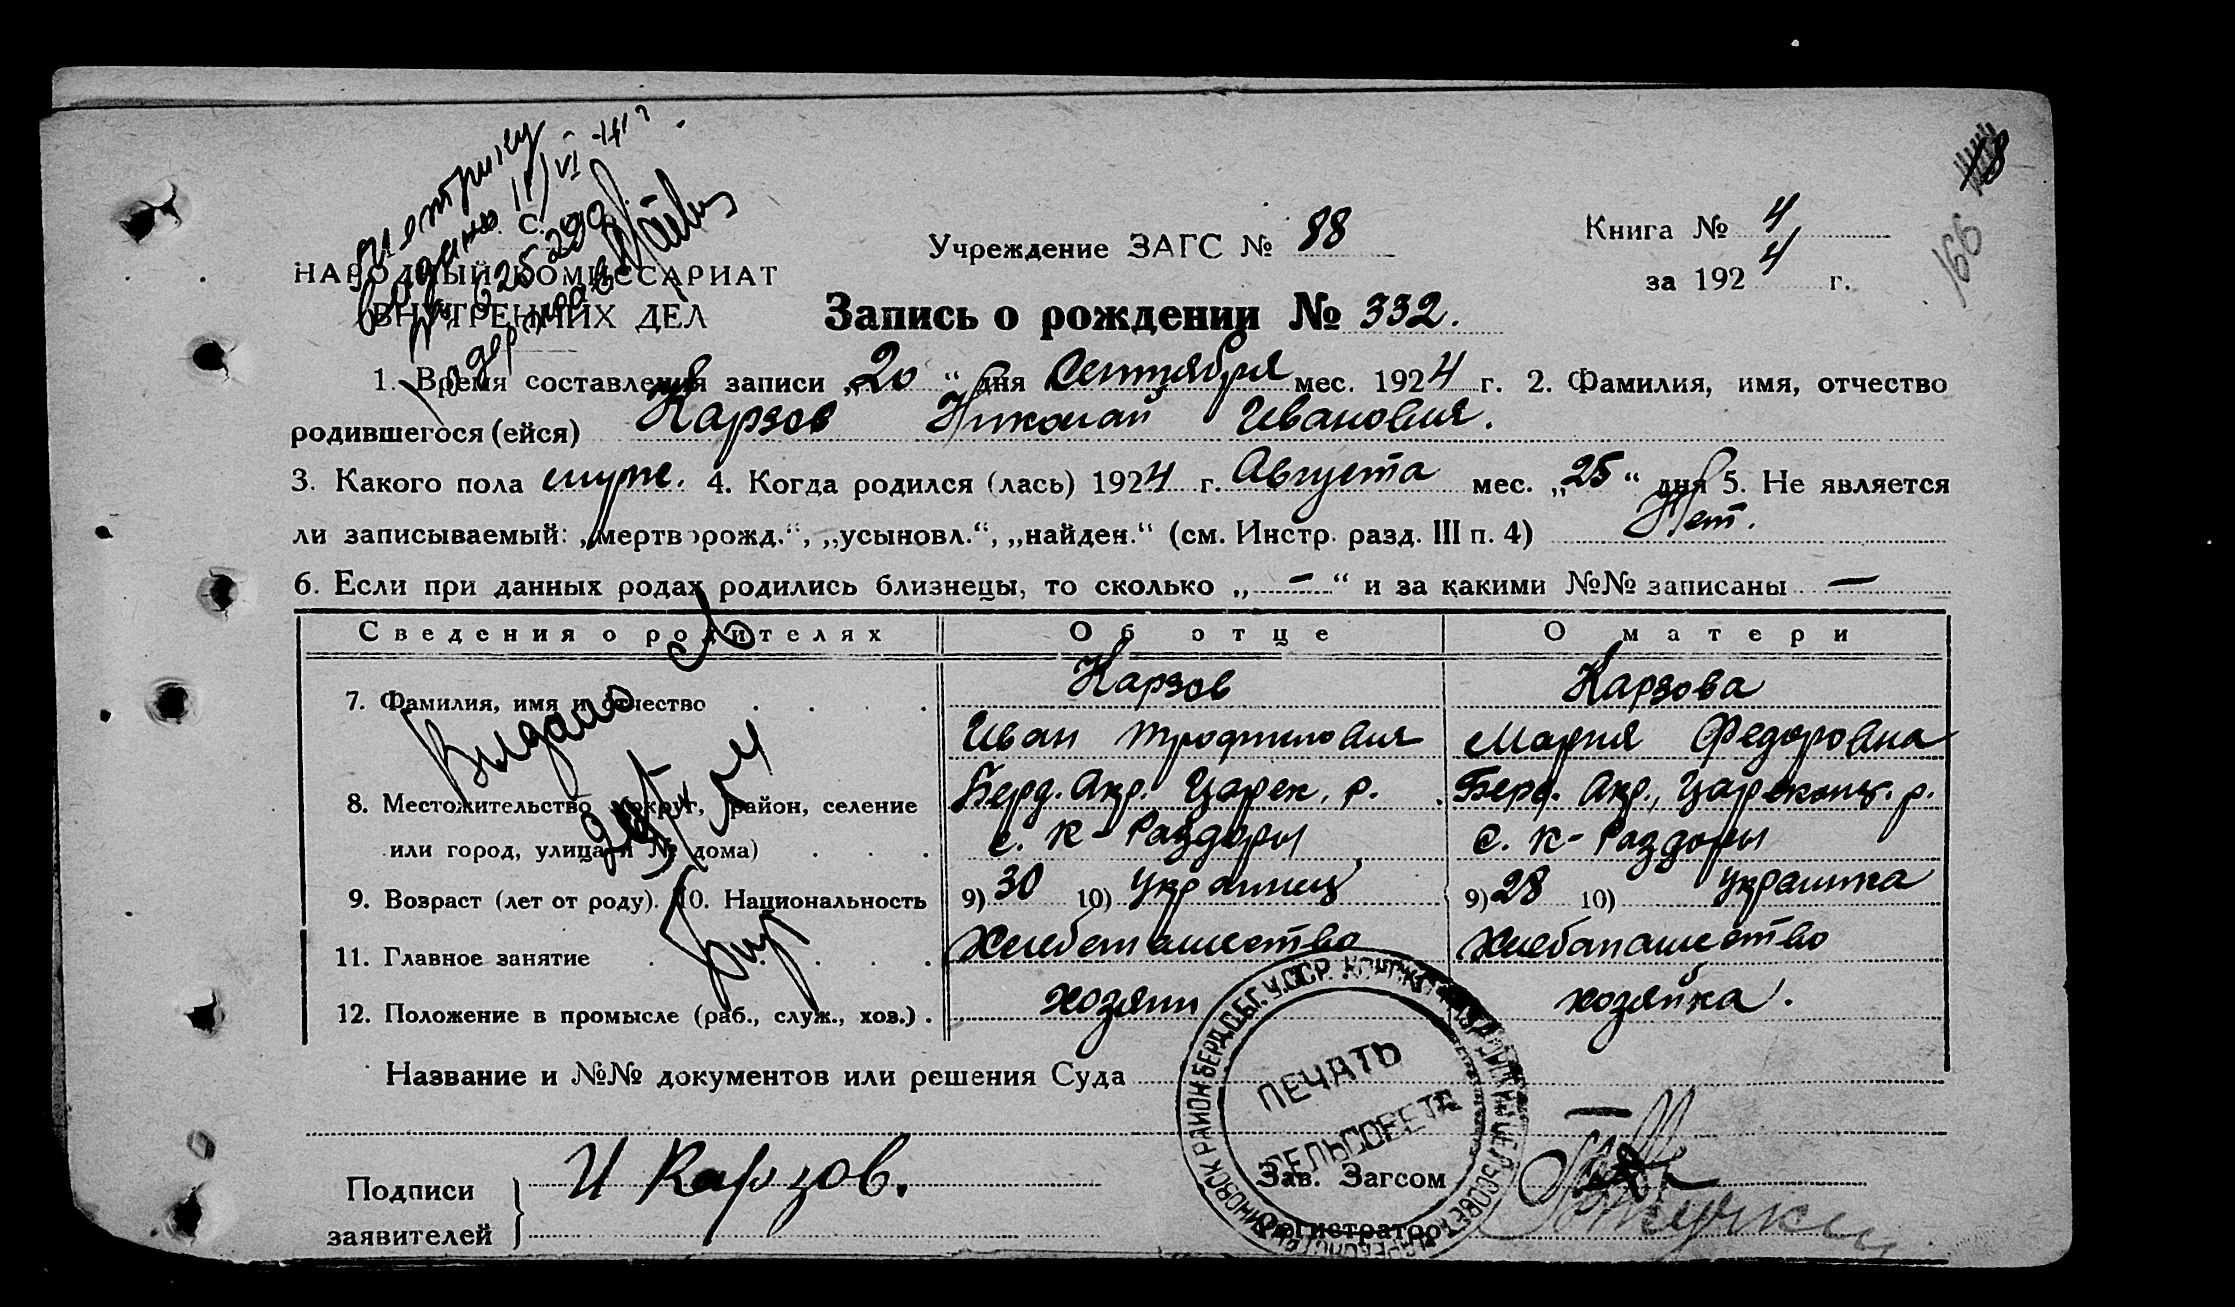 метрику
выдано
С.
НАРОДНЫЙ КОМИССАРИАТ
ВНУТРЕННИХ ДЕЛ
Учреждение ЗАГС № 88
Книга № 4
за 1924 г.
166
Запись о рождении № 332.
1. Время составления записи „20“ дня Сентября мес. 1924 г. 2. Фамилия, имя, отчество
родившегося (ейся) Карзов Николай Иванович.
3. Какого пола муж. 4. Когда родился (лась) 1924 г. Августа мес. „25“ дня 5. Не является
ли записываемый: „мертворожд.“, „усыновл.“, „найден.“ (см. Инстр. разд. III п. 4) Нет.
6. Если при данных родах родились близнецы, то сколько „—“ и за какими №№ записаны —
Сведения о родителях Об отце О матери
7. Фамилия, имя и отчество Карзов Карзова
Иван Трофимович Мария Федоровна
8. Местожительство (округ, район, селение Берд. Окр. Царек. р. Берд. Окр., Цареконст. р.
или город, улица и № дома) с. К-Раздоры с. К-Раздоры
9. Возраст (лет от роду). 10. Национальность 9) 30 10) Украинец 9) 28 10) Украинка
11. Главное занятие Хлебопашество Хлебопашество
12. Положение в промысле (раб., служ., хоз.) хозяин хозяйка.
Видано
Название и №№ документов или решения Суда
ПЕЧАТЬ
СЕЛЬСОВЕТА
РАЙОН БЕРД. ОБГ. У.ССР.
Подписи
заявителей
И Карзов.
Зав. Загсом
Регистратор